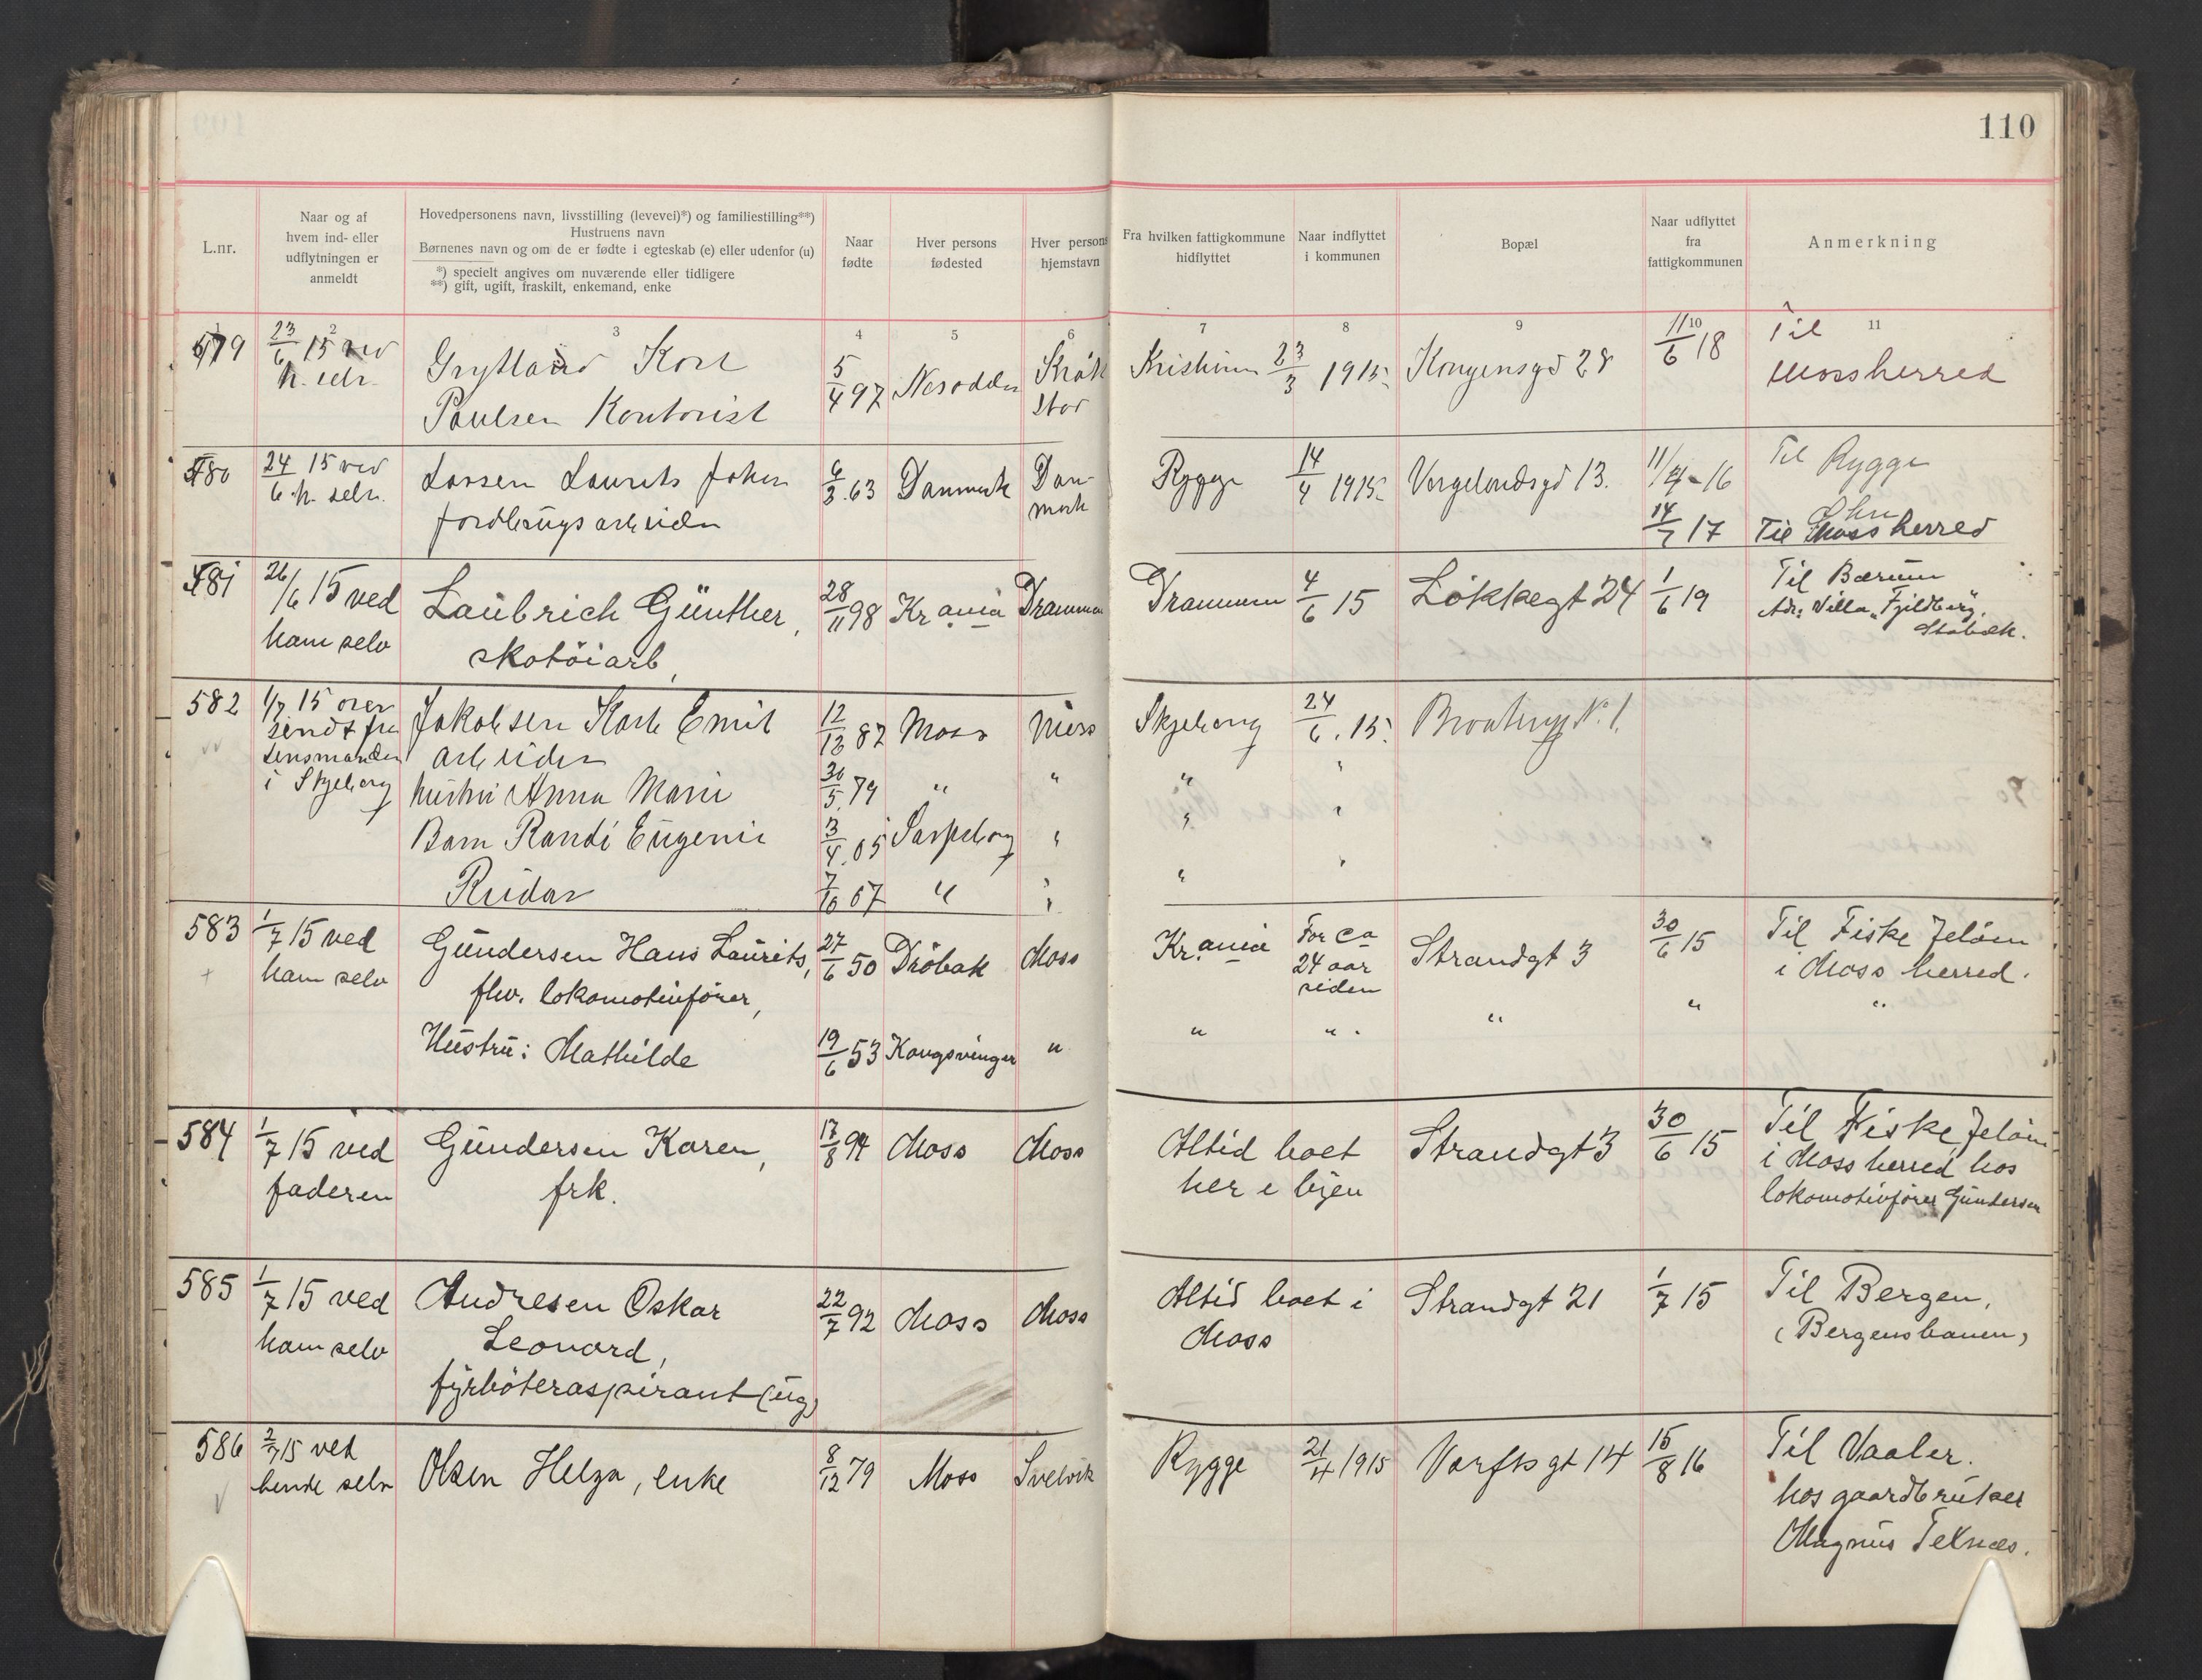 110
L.nr.
Naar og af
hvem ind- eller
udflytningen er
anmeldt
Hovedpersonens navn, livsstilling (levevei)*) og familiestilling**)
Hustruens navn
Børnenes navn og om de er fødte i egteskab (e) eller udenfor (u)
*) specielt angives om nuværende eller tidligere
**) gift, ugift, fraskilt, enkemand, enke
Naar
fødte
Hver persons
fødested
Hver persons
hjemstavn
Fra hvilken fattigkommune
hidflyttet
Naar indflyttet
i kommunen
Bopæl
Naar udflyttet
fra
fattigkommunen
Anmerkning
2 3 4 5 6 7 8 9 10 11
579 23/6 15 ved Karl 5/4 97 Nesodden 23/3 1915 Kongensgd 28 11/6 18 Til
h. selv Paulsen Kontorist Moss herred
580 24/6 15 ved Larsen Laurits Johan 6/3 .63 Danmark Dan- Rygge 14/4 1915 Vergelandsgd 13. 11/4-16 Til Rygge
h. selv. jordbrugsarbeider mark
14/7 17 Til Moss herred
581 26/6 15 ved Laubrich Günther, 28/11 98 Kr.ania Drammen Drammen 4/6 15 Lökkegt 24 1/6 19 Til Bærum
ham selv skotöiarb, Adr: Villa "Fjeldberg",
Stabæk.
582 1/7 15 over Jakobsen Karl Emil 12/12 87 Moss Moss Skjeberg 24/6 .15. No 1.
sendt fra arbeider
lensmanden hustru Anna Marie 30/5 .79 " " " "
i Skjeberg Barn Randi Eugenie 3/4 .05 Sarpsborg " " "
Reidar 7/10 07 " " " "
583 1/7 15 ved Gundersen Hans Laurits, 27/6 50 Dröbak Moss Kr.ania For ca Strandgt 3 30/6 15 Til Fiske Jelöen
ham selv flw. lokomotivförer, 24 aar i Moss herred.
siden
Hustru: Mathilde 19/6 53 Kongsvinger " " " " " "
584 1/7 15 ved Gundersen Karen, 17/8 94 Moss Moss Altid boet Strandgt 3 30/6 15 Til Fiske Jelöen
faderen frk. her i byen i Moss herred hos
lokomotivförer Gundersen
585 1/7 15 ved Andresen Oskar 22/7 92 Moss Moss Altid boet i Strandgt 21 1/7 15 Til Bergen,
ham selv Leonard, Moss (Bergensbanen)
fyrböteraspirant (ug)
586 2/7 15 ved Olsen Helga, enke 8/12 79 Moss Svelvik Rygge 21/4 1915 Varfts gt 14 15/8 16 Til Vaaler.
hende selv hos gaardbruker
Magnus Teknæs.